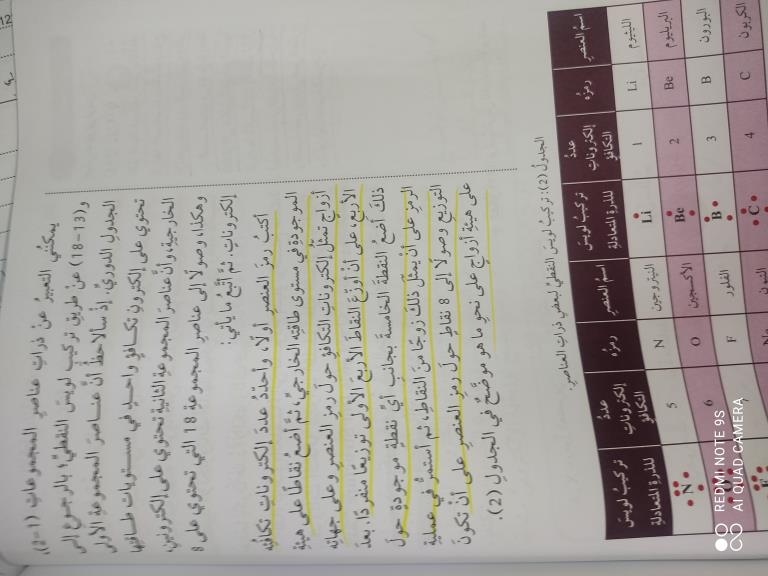 يمكنُني التعبيرُ عنْ ذراتِ عناصرِ المجموعاتِ (1-2)،
و(13-18) عنْ طريقِ تركيبِ لويسَ النقطيِّ؛ بالرجوعِ إلى
الجدولِ الدوريِّ؛ إذْ سألاحظُ أنَّ عناصرَ المجموعةِ الأولى
تحتوي على إلكترونِ تكافؤٍ واحدٍ في مستوياتِ طاقتِها
الخارجيةِ، وأنَّ عناصرَ المجموعةِ الثانيةِ تحتوي على إلكترونينِ،
وهكذا، وصولًا إلى عناصرِ المجموعةِ 18 التي تحتوي على 8
إلكتروناتٍ. ثمَّ أتَّبعُ ما يأتي:
أكتبُ رمزَ العنصرِ أولًا، وأحدِّدُ عددَ إلكتروناتِ تكافئِهِ
الموجودةِ في مستوى طاقتِهِ الخارجيِّ؛ ثمَّ أضعُ نقاطًا على هيئةِ
أزواجٍ تمثلُ إلكتروناتِ التكافؤِ حولَ رمزِ العنصرِ وعلى جهاتِهِ
الأربعِ، على أنْ أوزِّعَ النقاطَ الأربعَ الأولى توزيعًا منفردًا. بعدَ
ذلكَ أضعُ النقطةَ الخامسةَ بجانبِ أيِّ نقطةٍ موجودةٍ حولَ
الرمزِ على أنْ يمثِّلَ ذلكَ زوجًا منَ النقاطِ، ثم أستمرُّ في عمليةِ
التوزيعِ وصولًا إلى 8 نقاطٍ حولَ رمزِ العنصرِ على أنْ تكونَ
على هيئةِ أزواجٍ على نحوِ ما هو موضَّحٌ في الجدولِ (2).
الجدولُ (2): تركيبُ لويسَ النقطيُّ لبعضِ ذراتِ العناصرِ.
اسمُ العنصرِ رمزُهُ عددُ إلكتروناتِ التكافؤِ تركيبُ لويسَ للذرةِ المتعادلةِ اسمُ العنصرِ رمزُهُ عددُ إلكتروناتِ التكافؤِ تركيبُ لويسَ للذرةِ المتعادلةِ
الليثيوم Li 1 Li النيتروجين N 5 N
البريليوم Be 2 Be الأكسجين O 6
البورون B 3 B الفلور F 7 F
الكربون C 4 C النيون Ne
12
REDMI NOTE 9S
AI QUAD CAMERA